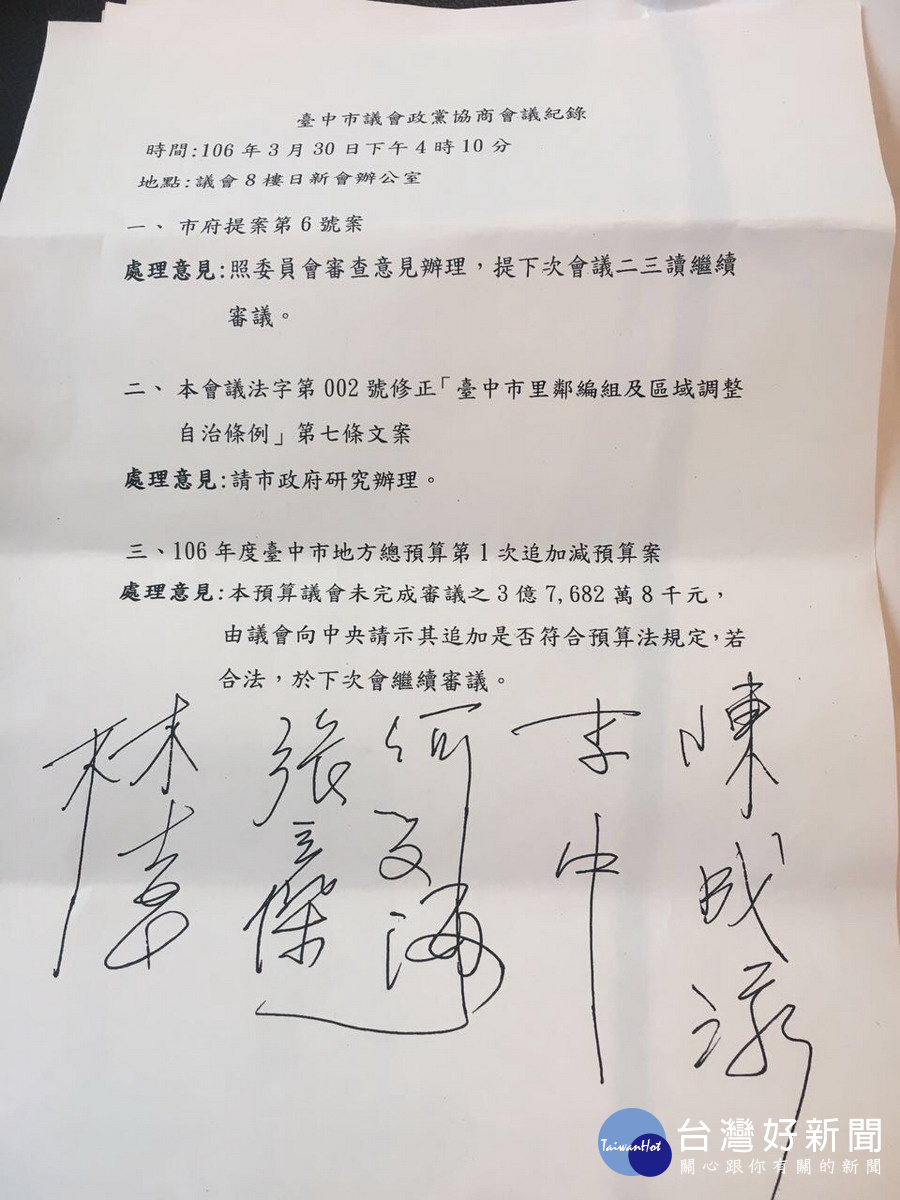 臺中市議會政黨協商會議紀錄
時間:106年3月30日下午4時10分
地點:議會8樓日新會辦公室
一、市府提案第6號案
處理意見:照委員會審查意見辦理,提下次會議二三讀繼續
審議。
二、本會議法字第002號修正「臺中市里鄰編組及區域調整
自治條例」第七條文案
處理意見:請市政府研究辦理。
三、106年度臺中市地方總預算第1次追加減預算案
處理意見:本預算議會未完成審議之3億7,682萬8千元,
由議會向中央請示其追加是否符合預算法規定,若
合法,於下次會繼續審議。
張立傑
何文海
李中
陳成
TaiwanHot
台灣好新聞
關心跟你有關的新聞